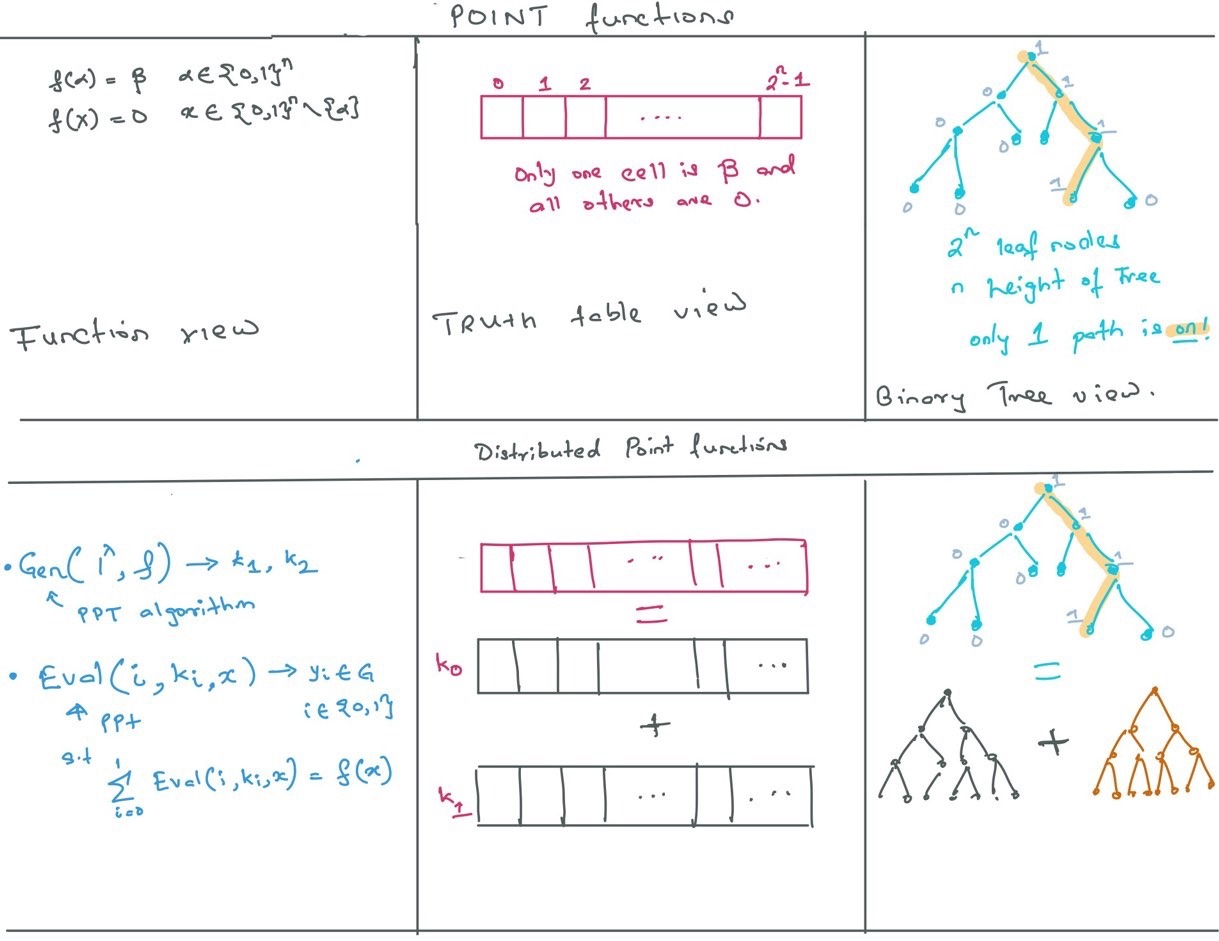 POINT functions
f(α) = β α ∈ {0,1}ⁿ
f(x) = 0 x ∈ {0,1}ⁿ \ {α}
Function view
0 1 2 2ⁿ-1
....
Only one cell is β and
all others are 0.
TRUTH table view
1
0 1
0 0 1
1 0
0 0
2ⁿ leaf nodes
n height of Tree
only 1 path is on!
Binary Tree view.
Distributed Point functions
• Gen(1^λ, f) → k1, k2
PPT algorithm
• Eval(i, ki, x) → yi ∈ G
PPt i ∈ {0,1}
s.t
1
∑ Eval(i, ki, x) = f(x)
i=0
... ...
=
k0 ...
+
k1 ... ...
1
0 1
0 0 1
1 0
0 0
=
+